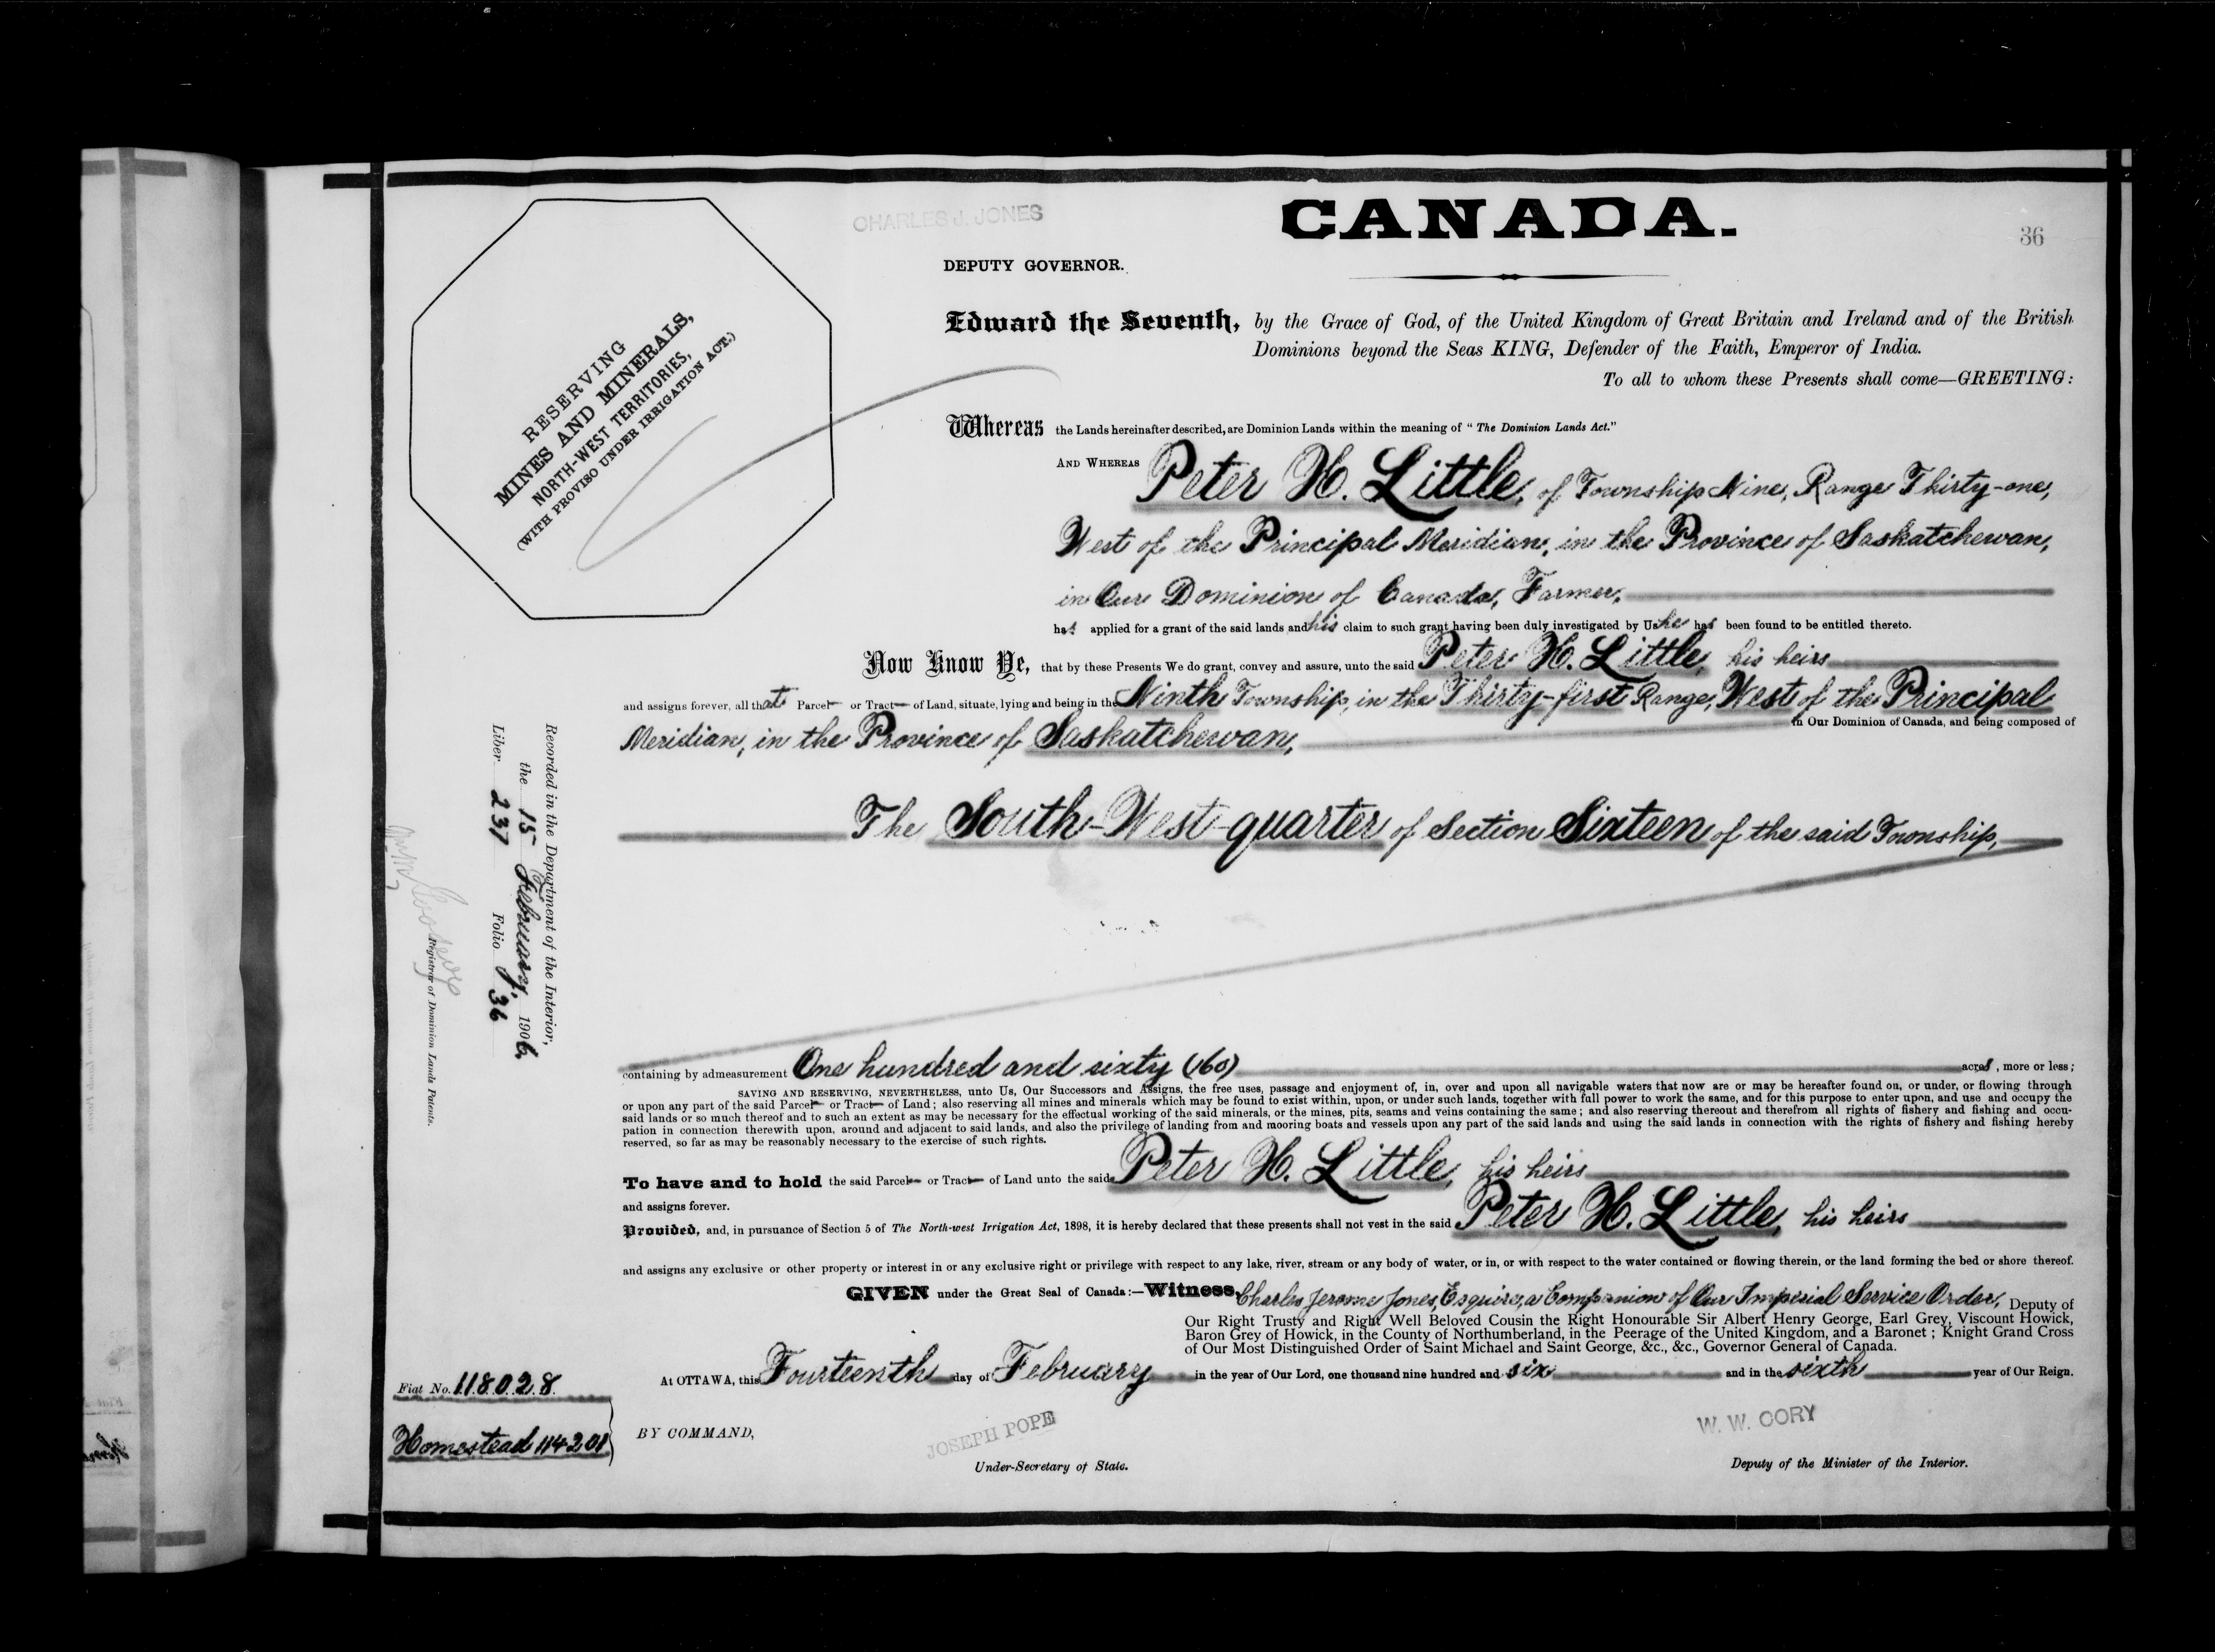 CHARLES J. JONES
CANADA.
36
DEPUTY GOVERNOR.
RESERVING
MINES AND MINERALS,
NORTH-WEST TERRITORIES,
(WITH PROVISO UNDER IRRIGATION ACT.)
Edward the Seventh, by the Grace of God, of the United Kingdom of Great Britain and Ireland and of the British
Dominions beyond the Seas KING, Defender of the Faith, Emperor of India.
To all to whom these Presents shall come—GREETING:
Whereas the Lands hereinafter described, are Dominion Lands within the meaning of "The Dominion Lands Act."
AND WHEREAS Peter H. Little, of Township Nine, Range Thirty-one,
West of the Principal Meridian, in the Province of Saskatchewan,
in Our Dominion of Canada, Farmer,
has applied for a grant of the said lands and his claim to such grant having been duly investigated by Us he has been found to be entitled thereto.
Now Know Ye, that by these Presents We do grant, convey and assure, unto the said Peter H. Little, his heirs
and assigns forever, all that Parcel or Tract of Land, situate, lying and being in the Ninth Township, in the Thirty-first Range, West of the Principal
Meridian, in the Province of Saskatchewan, in Our Dominion of Canada, and being composed of
The South-West-quarter of Section Sixteen of the said Township,
Recorded in the Department of the Interior,
the 15 February, 1906
Liber 237 Folio 36
Registrar of Dominion Lands Patents.
containing by admeasurement One hundred and sixty (160) acres, more or less;
SAVING AND RESERVING, NEVERTHELESS, unto Us, Our Successors and Assigns, the free uses, passage and enjoyment of, in, over and upon all navigable waters that now are or may be hereafter found on, or under, or flowing through
or upon any part of the said Parcel or Tract of Land; also reserving all mines and minerals which may be found to exist within, upon, or under such lands, together with full power to work the same, and for this purpose to enter upon, and use and occupy the
said lands or so much thereof and to such an extent as may be necessary for the effectual working of the said minerals, or the mines, pits, seams and veins containing the same; and also reserving thereout and therefrom all rights of fishery and fishing and occu-
pation in connection therewith upon, around and adjacent to said lands, and also the privilege of landing from and mooring boats and vessels upon any part of the said lands and using the said lands in connection with the rights of fishery and fishing hereby
reserved, so far as may be reasonably necessary to the exercise of such rights.
To have and to hold the said Parcel or Tract of Land unto the said Peter H. Little, his heirs
and assigns forever.
Provided, and, in pursuance of Section 5 of The North-west Irrigation Act, 1898, it is hereby declared that these presents shall not vest in the said Peter H. Little, his heirs
and assigns any exclusive or other property or interest in or any exclusive right or privilege with respect to any lake, river, stream or any body of water, or in, or with respect to the water contained or flowing therein, or the land forming the bed or shore thereof.
GIVEN under the Great Seal of Canada:—Witness, Charles Jerome Jones, Esquire, a Companion of Our Imperial Service Order, Deputy of
Our Right Trusty and Right Well Beloved Cousin the Right Honourable Sir Albert Henry George, Earl Grey, Viscount Howick,
Baron Grey of Howick, in the County of Northumberland, in the Peerage of the United Kingdom, and a Baronet; Knight Grand Cross
of Our Most Distinguished Order of Saint Michael and Saint George, &c., &c., Governor General of Canada.
At OTTAWA, this Fourteenth day of February in the year of Our Lord, one thousand nine hundred and six and in the sixth year of Our Reign.
Fiat No. 118028
Homestead 114201
BY COMMAND,
JOSEPH POPE
Under-Secretary of State.
W. W. CORY
Deputy of the Minister of the Interior.